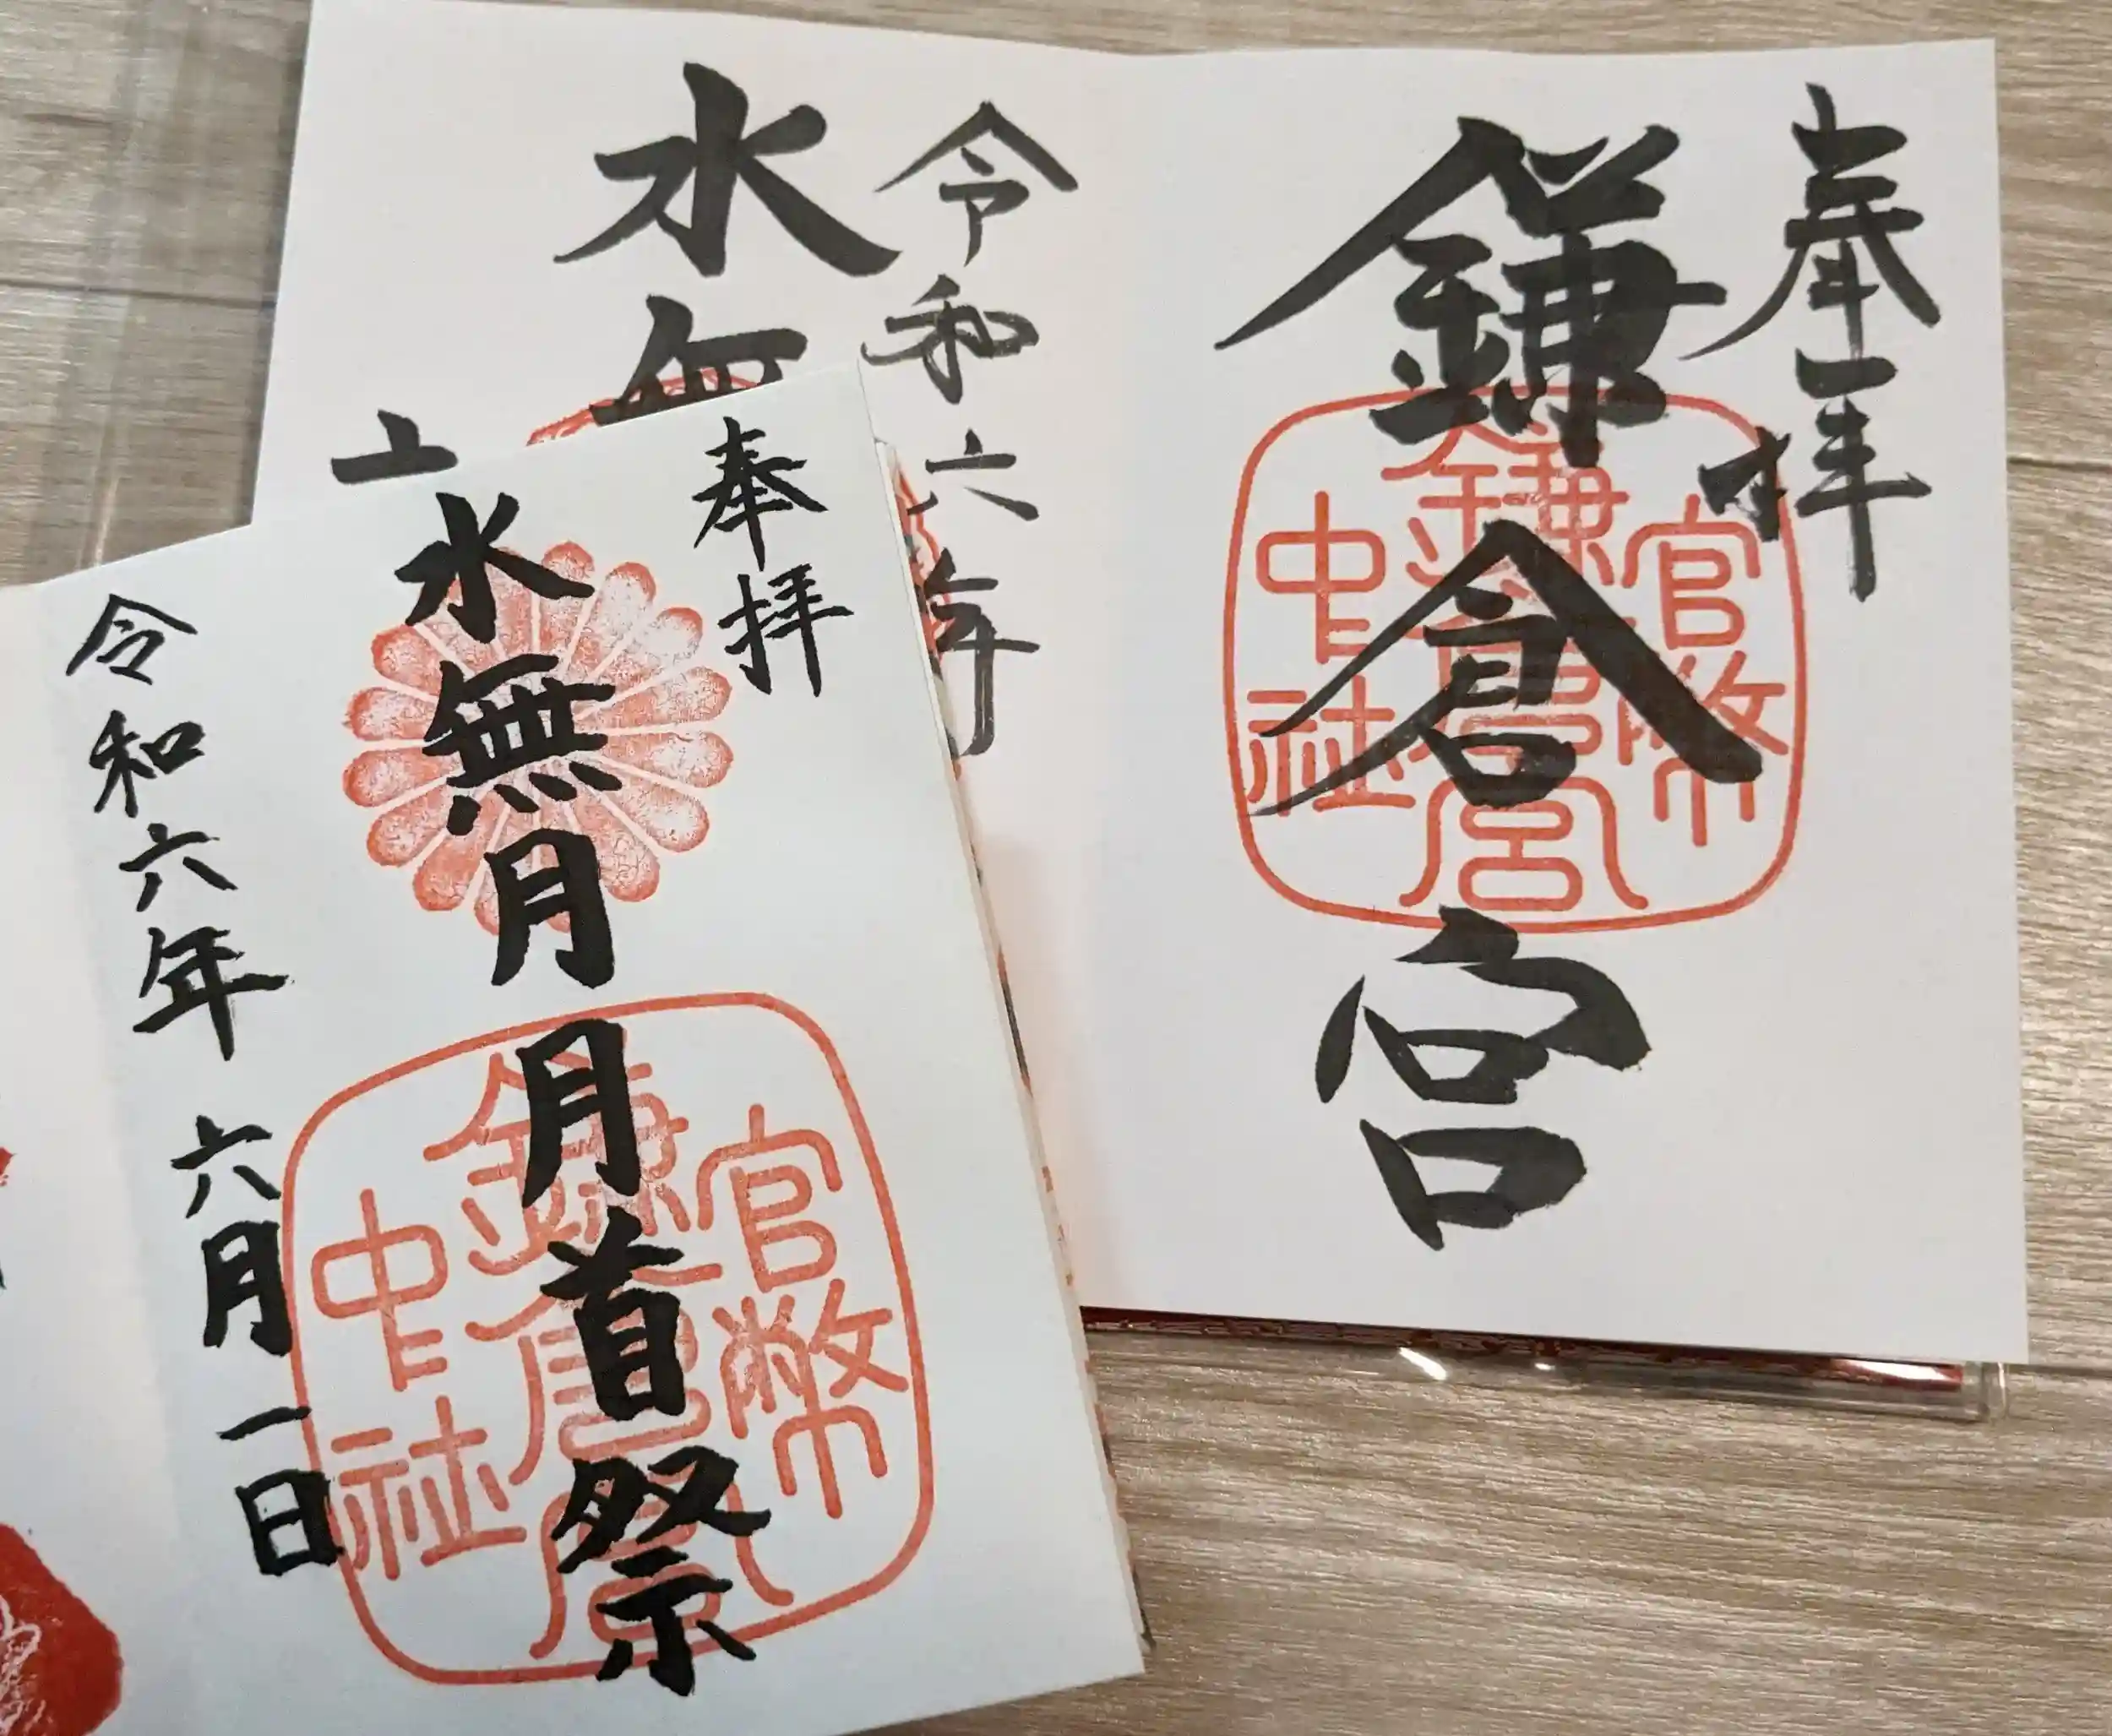 奉拝
鎌倉宮
官幣
鎌倉宮
中社
令和六年
水無
奉拝
水無月
月首祭
官幣
鎌倉宮
中社
令和六年 六月一日